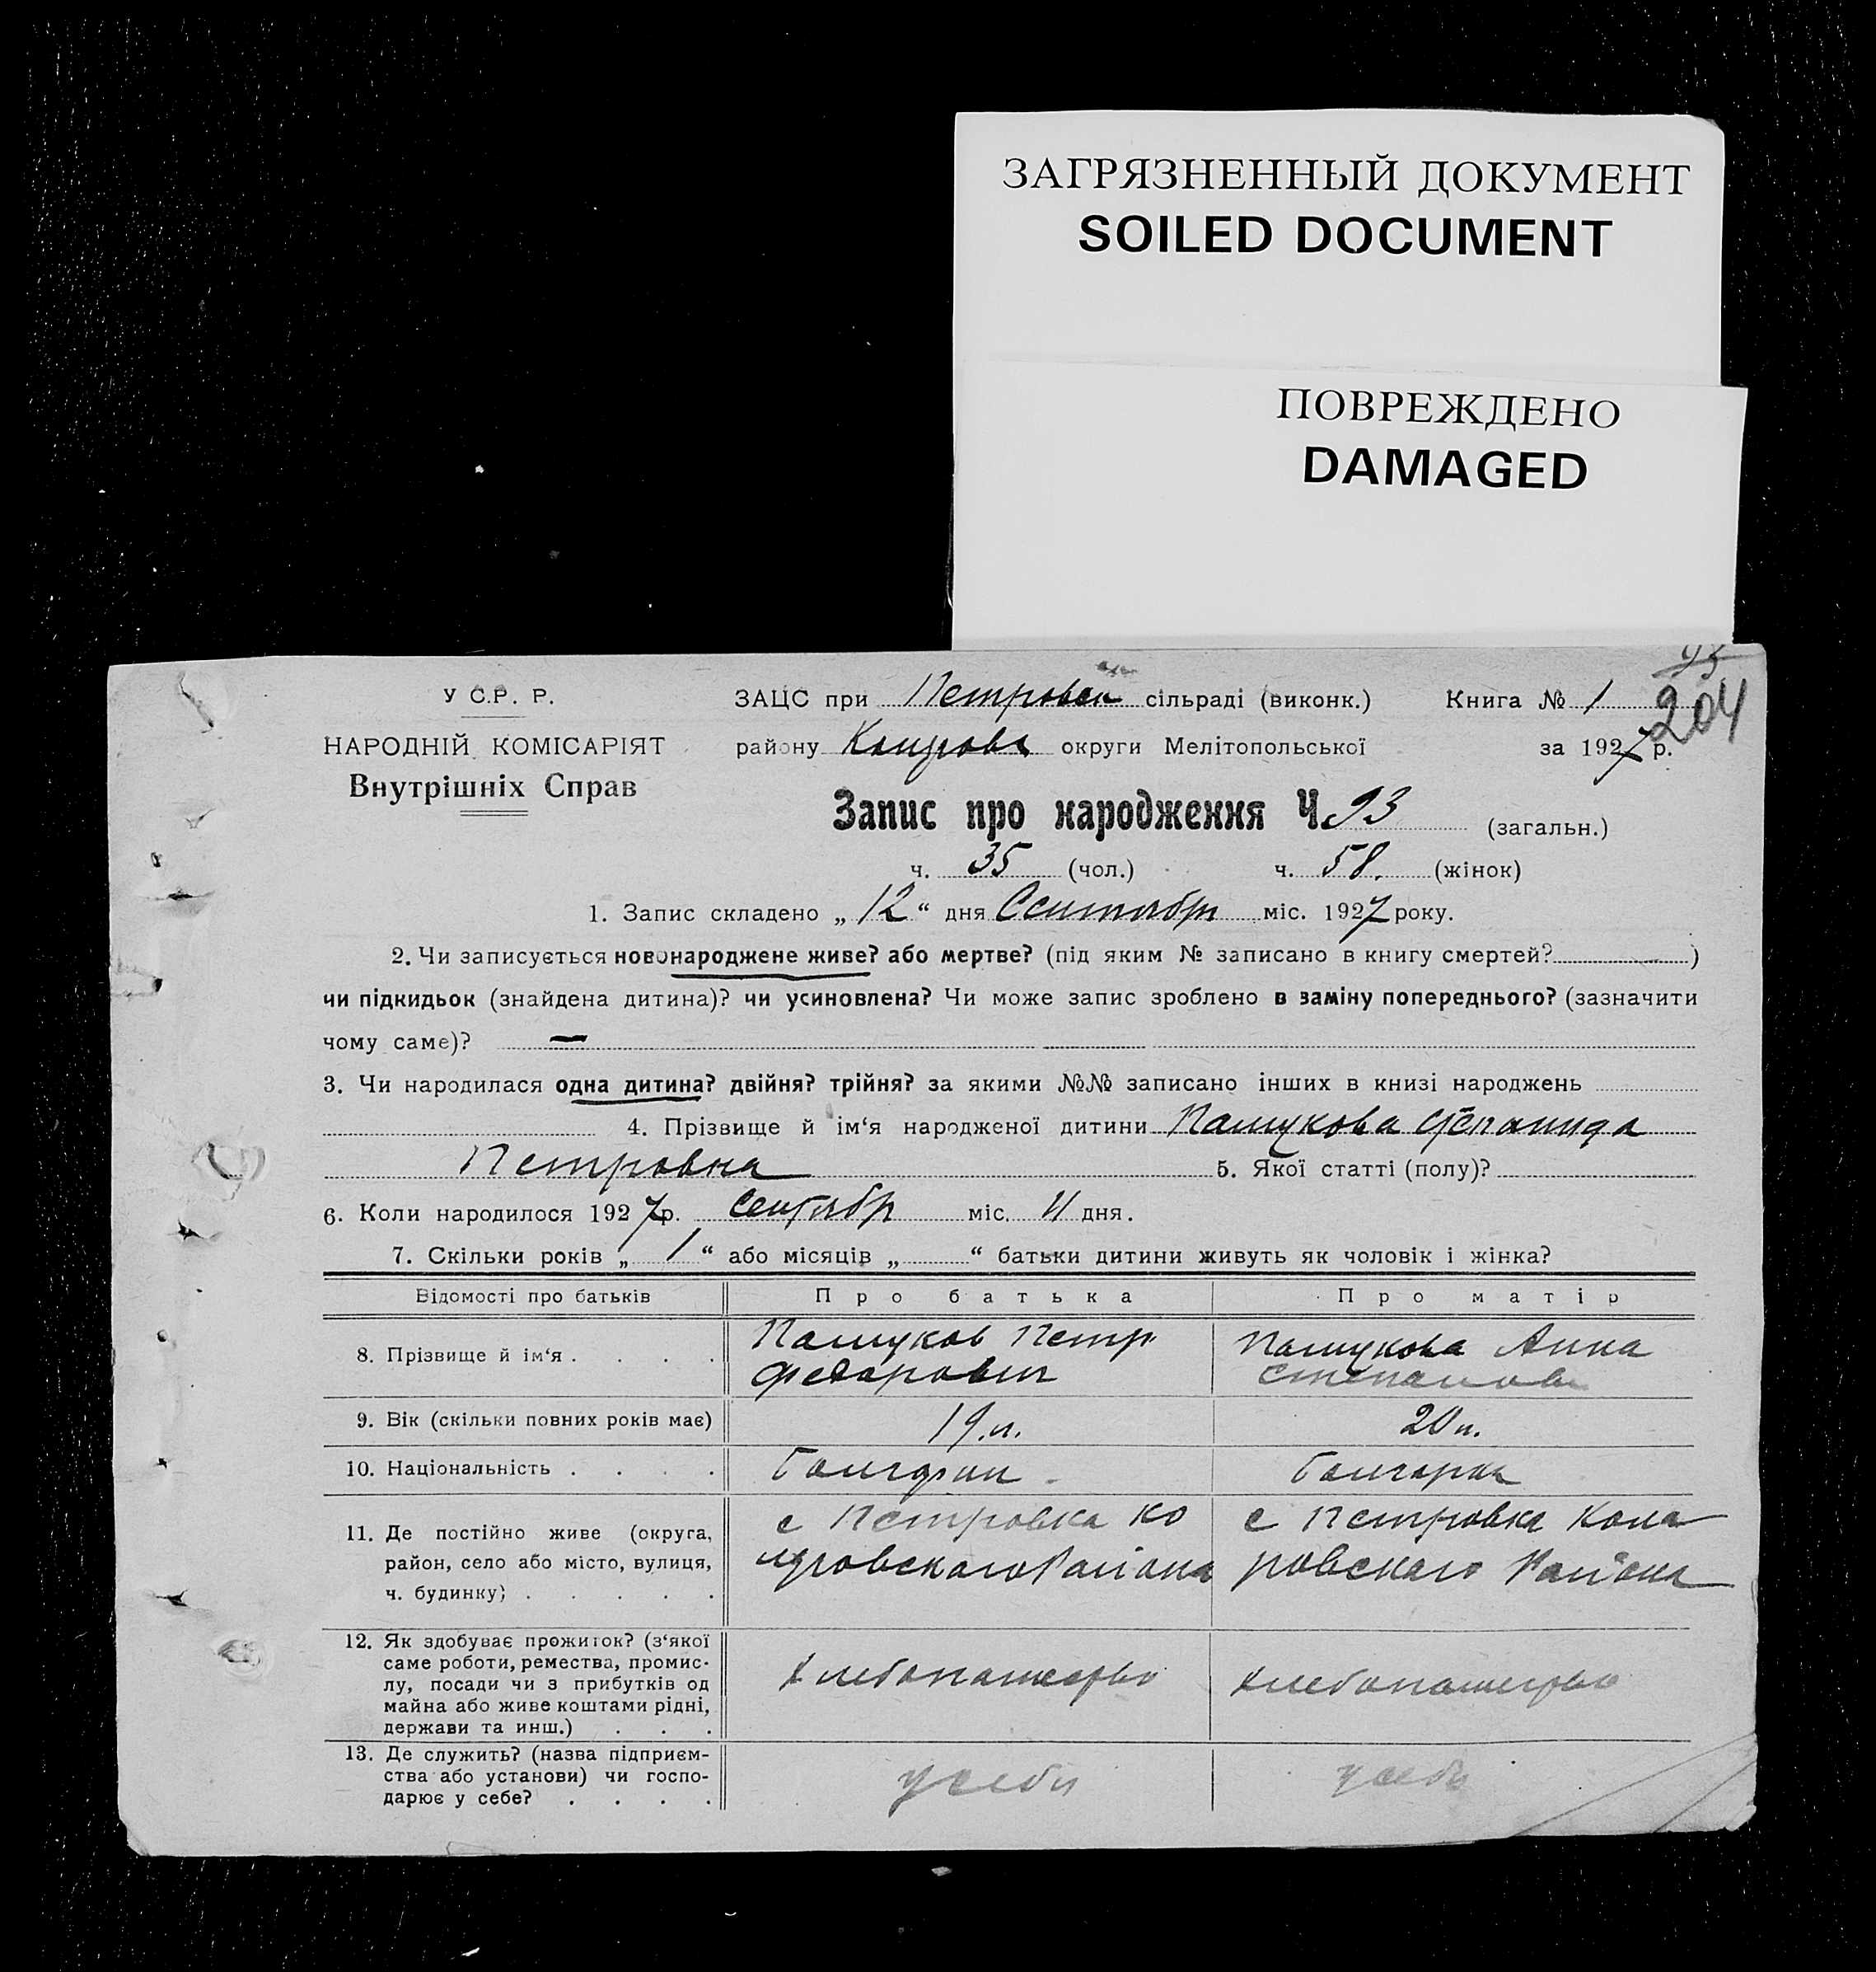 ЗАГРЯЗНЕННЫЙ ДОКУМЕНТ
SOILED DOCUMENT
ПОВРЕЖДЕНО
DAMAGED
93
204
У С.Р. Р.
НАРОДНІЙ КОМІСАРІЯТ
Внутрішніх Справ
ЗАЦС при Петровск сільраді (виконк.) Книга № 1
району округи Мелітопольської за 1927 р.
Запис про народження Ч. 93 (загальн.)
ч. 35 (чол.) ч. 58. (жінок)
1. Запис складено „ 12 “ дня Сентябрь міс. 1927 року.
2. Чи записується новонароджене живе? або мертве? (під яким № записано в книгу смертей? )
чи підкидьок (знайдена дитина)? чи усиновлена? Чи може запис зроблено в заміну попереднього? (зазначити
чому саме)? —
3. Чи народилася одна дитина? двійня? трійня? за якими №№ записано інших в книзі народжень
4. Прізвище й ім‘я народженої дитини Пашукова Степанида
Петровна 5. Якої статті (полу)?
6. Коли народилося 1927 р. Сентябр міс. 11 дня.
7. Скільки років „ 1 “ або місяців „ “ батьки дитини живуть як чоловік і жінка?
Відомості про батьків Про батька Про матір
8. Прізвище й ім‘я . . . . Пашуков Петр Федорович Пашукова Анна Степанов
9. Вік (скільки повних років має) 19.л. 20л.
10. Національність . . . . болгарин болгарка
11. Де постійно живе (округа, район, село або місто, вулиця, ч. будинку) . . . . . с Петровка Ко ларовскаго Района с Петровка Кола ровскаго Района
12. Як здобуває прожиток? (з‘якої саме роботи, ремества, промислу, посади чи з прибутків од майна або живе коштами рідні, держави та инш.) . . . Хлебопашество Хлебопашество
13. Де служить? (назва підприємства або установи) чи господарює у себе? . . . . у себя у себя